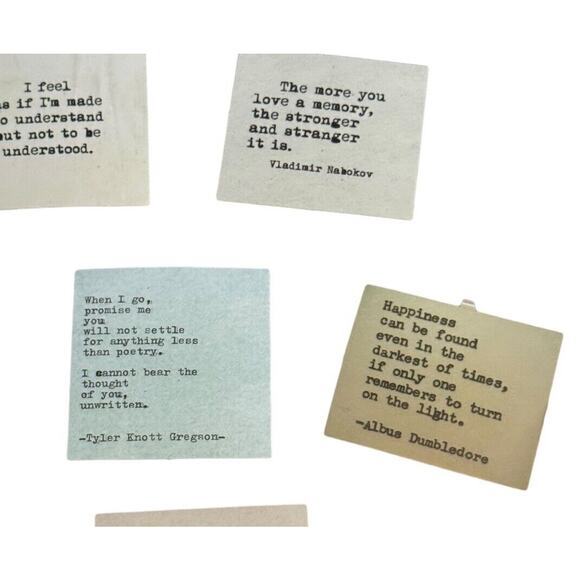 I feel
as if I'm made
to understand
but not to be
understood.
The more you
love a memory,
the stronger
and stranger
it is.
Vladimir Nabokov
When I go,
promise me
you
will not settle
for anything less
than poetry.
I cannot bear the
thought
of you,
unwritten.
-Tyler Knott Gregson-
Happiness
can be found
even in the
darkest of times,
if only one
remembers to turn
on the light.
-Albus Dumbledore